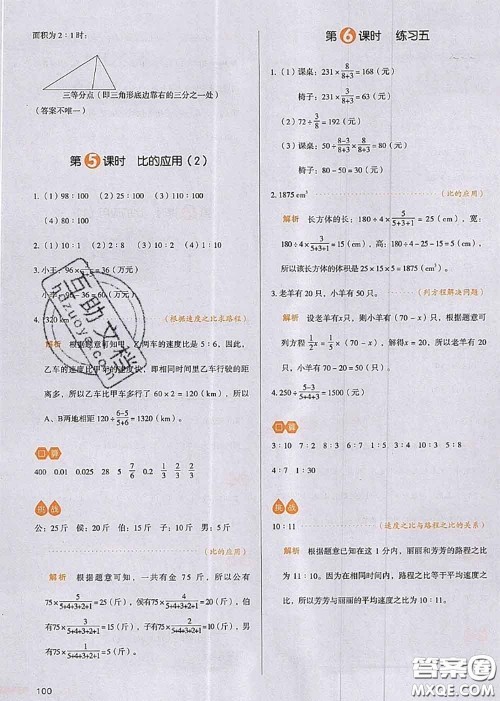 面积为 2∶1 时:
三等分点（即三角形底边靠右的三分之一处）
（答案不唯一）
第5课时 比的应用（2）
1.（1）98∶100 （2）25∶100 （3）110∶100
（4）80∶100
2.（1）10∶1 （2）2∶8 （3）10∶4 （4）1∶10
3. 小王: 96× =36（万元）
小李: 96-36=60（万元）
4. 1320 km （根据速度之比求路程）
解析 根据题意可知甲、乙两车的速度比是 5∶6，因此乙
车的速度比甲车的速度快，即相同时间里乙车行驶的距
离多，所以乙车比甲车多行了 60×2=120（km），所以
A、B两地相距 120÷(6-5)/(5+6)=1320（km）
口算
400 0.01 0.025 28 5 7/6 0.2 1/3 2/3 2/3
挑战
公: 25 斤 侯: 20 斤 伯: 15 斤 子: 10 斤 男: 5 斤
（比的应用）
解析 根据题意可知，一共有金 75 斤，所以公有
75×5/(5+4+3+2+1)=25（斤），侯有75×4/(5+4+3+2+1)=20（斤），伯
有75×3/(5+4+3+2+1)=15（斤），子有75×2/(5+4+3+2+1)=10（斤），男
有75×1/(5+4+3+2+1)=5（斤）
100
第6课时 练习五
1.（1）课桌: 231×8/(8+3)=168（元）
椅子: 231×3/(8+3)=63（元）
（2）72÷3/8=192（元）
（3）课桌: 50÷(8-3)/8=80（元）
椅子: 80-50=30（元）
2. 1875 cm³ （比的应用）
解析 长方体的长: 180÷4×5/(5+3+1)=25（cm），宽:
180÷4×3/(5+3+1)=15（cm），高: 180÷4-25-15=5（cm），
所以该长方体的体积是 25×15×5=1875（cm³）
3. 老羊有 20 只，小羊有 50 只。 （列方程解决问题）
解析 设老羊有x只，则小羊有（70-x）只，根据题意可
列方程 1/2x=1/5×（70-x），解得 x=20，所以老羊有 20
只，小羊有70-20=50（只）
4. 250÷(5-3)/(5+4+3)=1500（本）
口算
3∶10 7∶2 3∶1 10∶3 1∶2 3∶4 5∶8
4∶7 1∶30
挑战
10∶11 （速度之比与路程之比的关系）
解析 根据题意可知在这 1 分内，丽丽和芳芳的路程之比
为11∶10。因为在相同时间内，路程之比等于平均速度之
比，所以芳芳与丽丽的平均速度之比为 10∶11。
互助文档
huzuowendang
答案圈
MXQE.COM